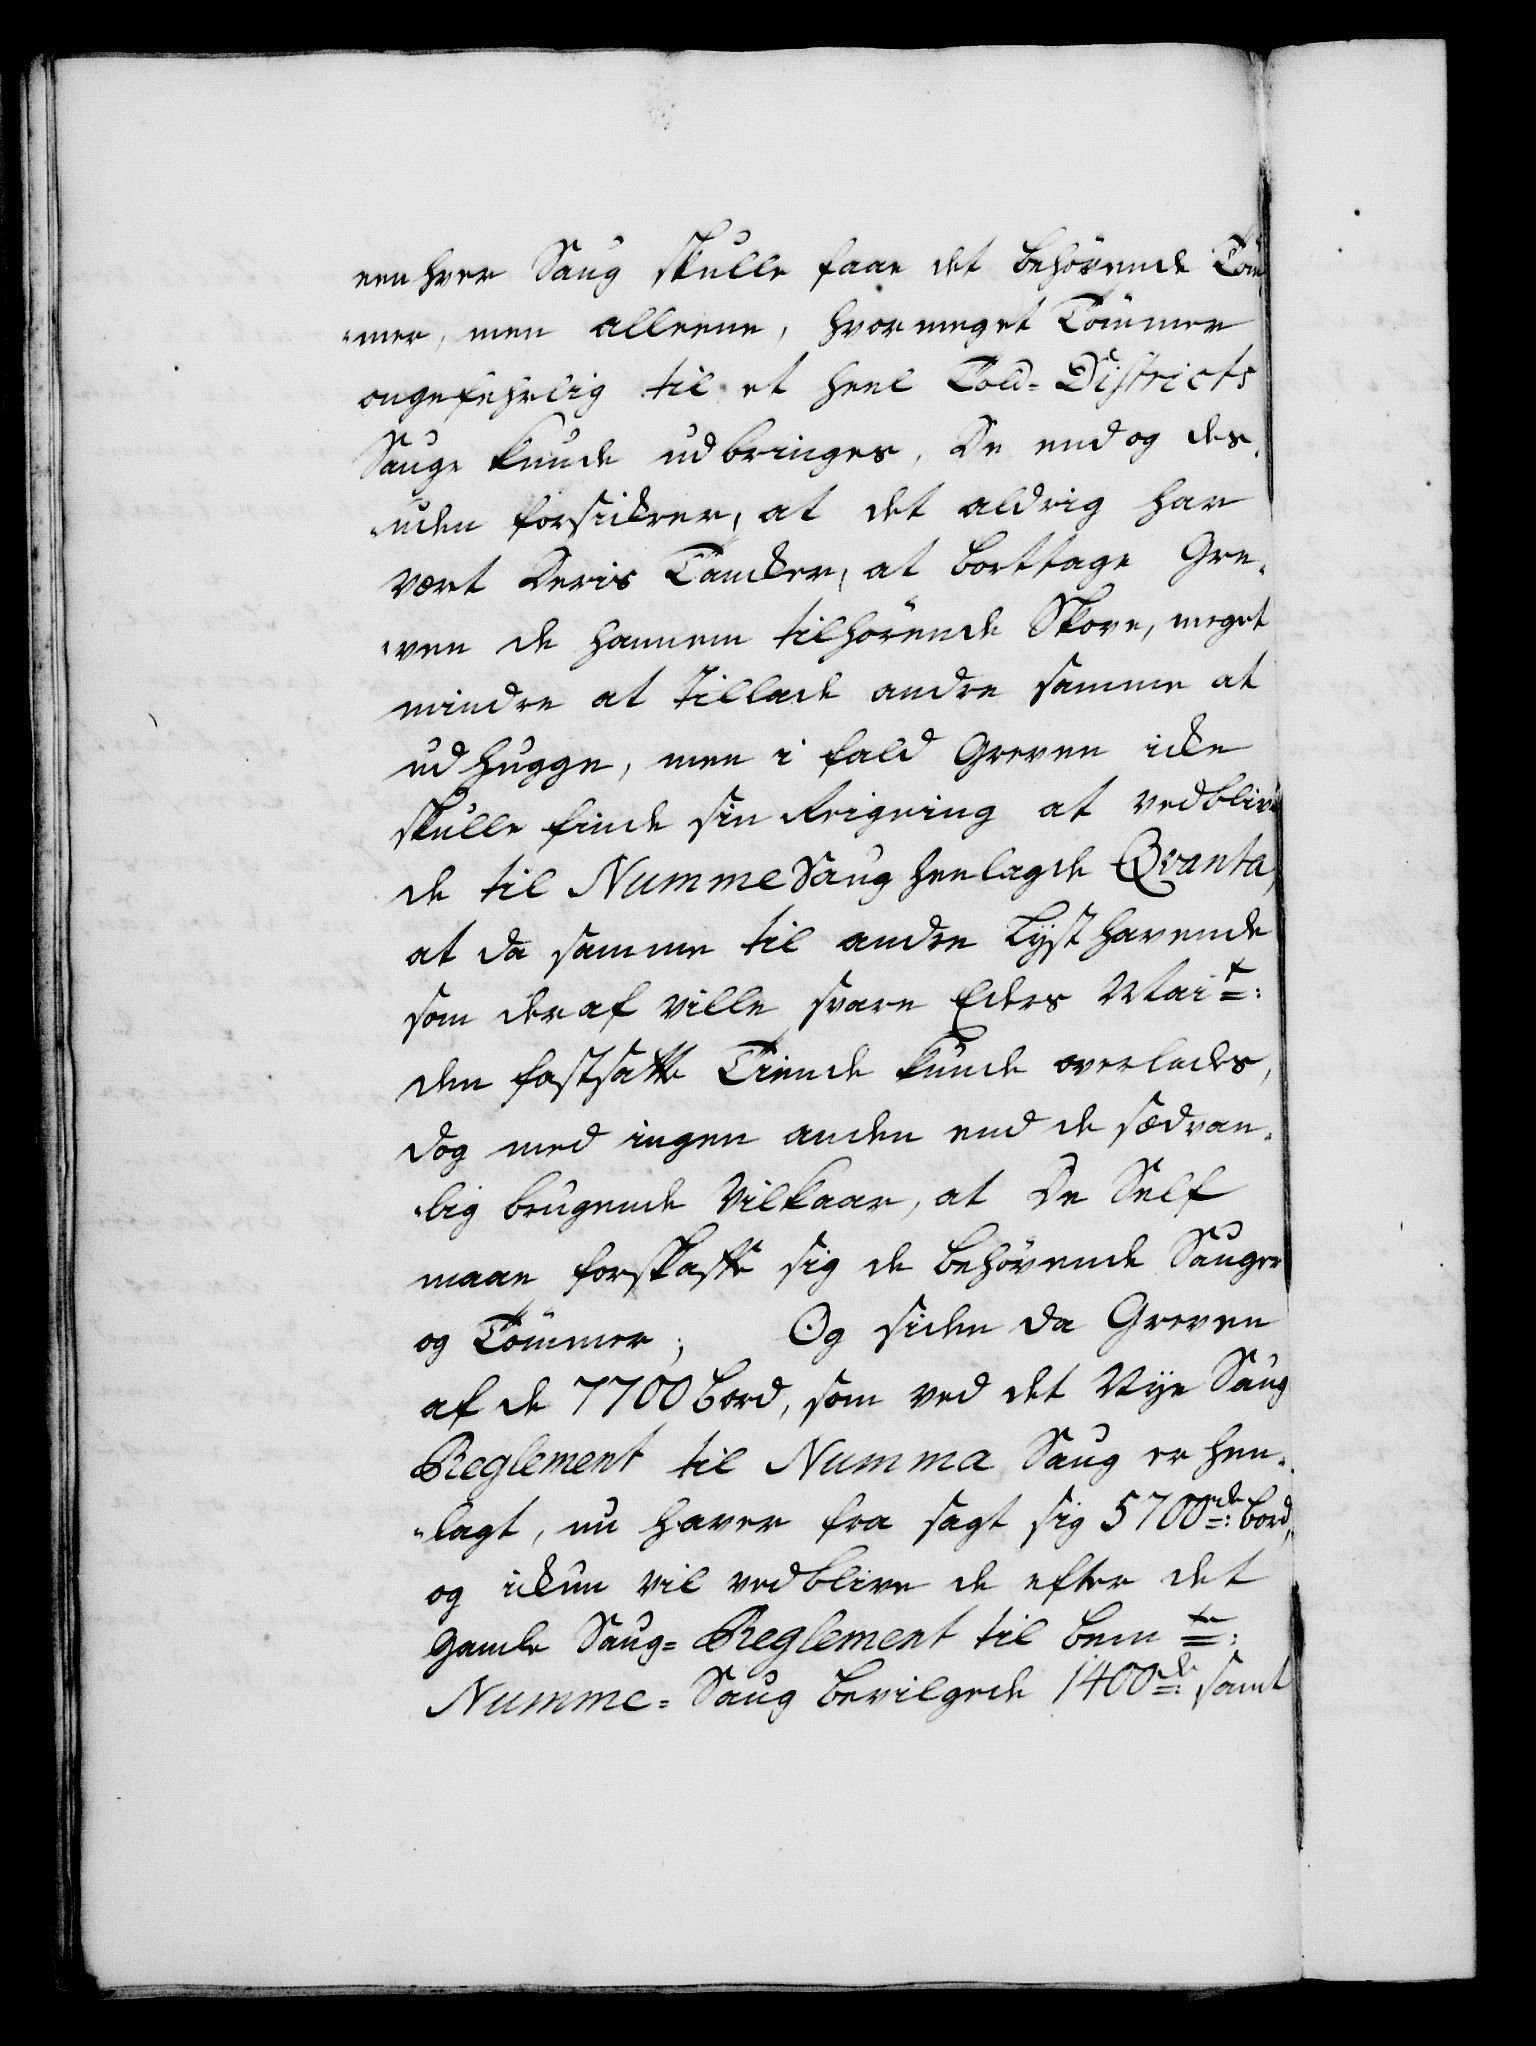 een hver Saug skulle faae det behövende Töm
mer, men alleene, hvor meget Tömmer
ongefehrlig til et heel Told-Districts
Sauge kunde udbringes, De end og des
uden forsickrer, at det aldrig har
vært Deris Tancker, at borttage Gre-
ven de hannem tilhörende Skove, meget
mindre at tillade andre samme at
udhugge, men i fald Greven icke
skulle finde sin Reigning at vedblive
de til Numme Saug henlagde Qvanta,
at da samme til andre Lysthavende
som deraf ville svare Eders Mait:
den fastsatte Tiende kunde overlades,
dog med ingen anden end de sædvan-
lig brugende Vilkaar, at De Self
maae forskaffe sig de behövende Sauger
og Tömmer; Og siden da Greven
af de 7700 Bord, som ved det Nye Saug
Reglement til Numma Saug er hen-
lagt, nu haver fra sagt sig 5700de: Bord,
og ickun vil vedblive de efter det
gamle Saug-Reglement til bemte:
Numme-Saug bevilgede 1400de: samt